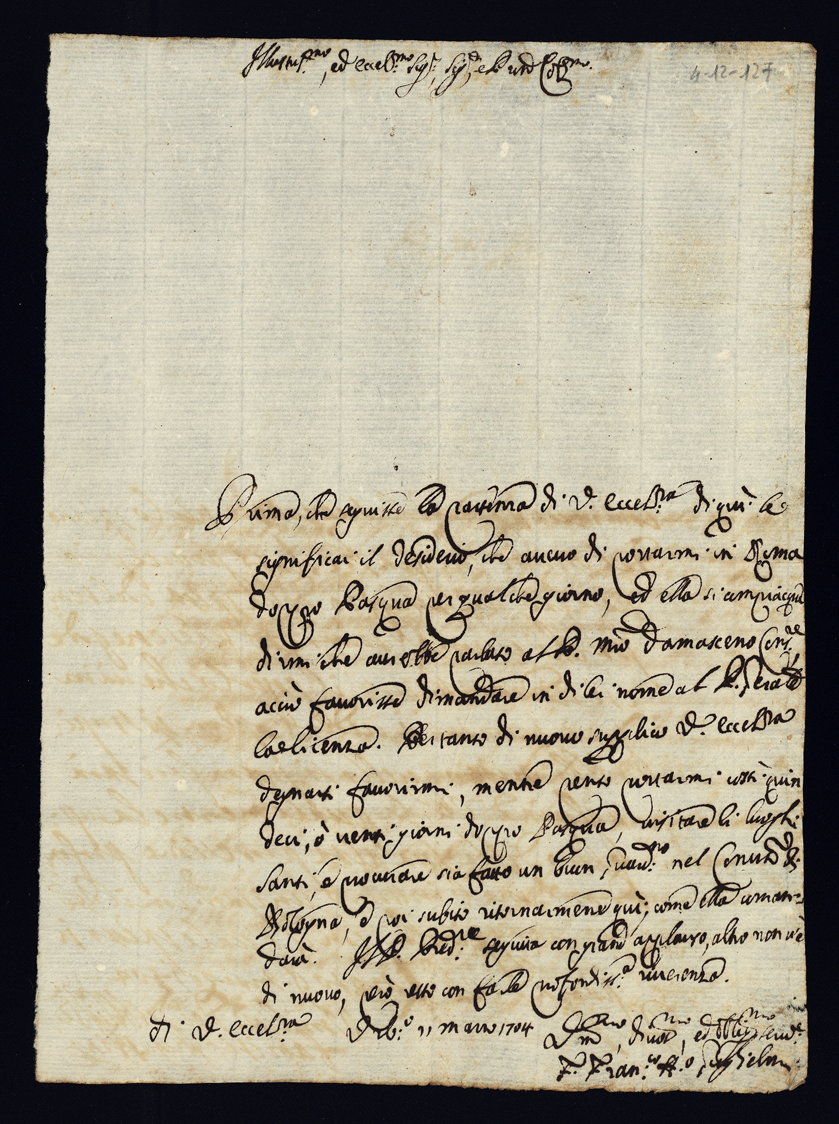 Illustr.mo, ed eccel.mo Sig.r, Sig.r, e
4-12-127
Prima, che seguisse la partenza di V. eccell.za di quì le
significai il desiderio, che aveuo di portarmi in Roma
doppo Pasqua per qualche giorno, ed ella si compiacque
dirmi che aurebbe parlato al P. Mro Damasceno
acciò favorisse dimandare in di lei nome al P.
la licenza. Pertanto di nuovo supplico V. eccell.za
degnarsi favorirmi, mentre penso portarmi costì quin
deci, ò venti giorni doppo Pasqua, visitare li luoghi
santi, e procurare sia fatto un buon nel Conu.to di
Bologna, e poi subito ritornarmene quì, come ella coman-
darà. Il P. Pred.re seguita con grand applauso, altro non v'è
di nuovo, però resto con farle profondiss.a riuerenza.
Di V. eccell.za 11 marzo 1704 , diuot.mo, ed obblig.mo seru.e
F. Fran.co